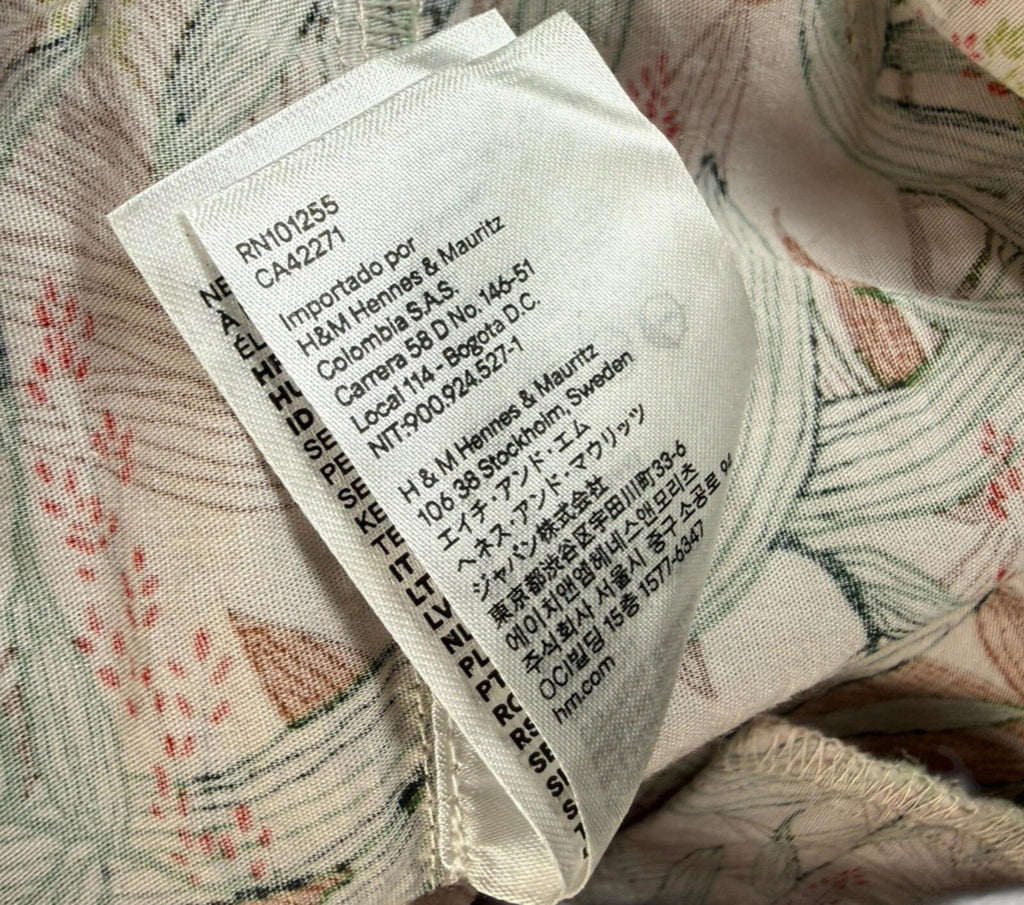 RN101255
CA42271
Importado por
H&M Hennes & Mauritz
Colombia S.A.S.
Carrera 58 D No. 146-51
Local 114 - Bogota D.C.
NIT:900.924.527-1
H & M Hennes & Mauritz
106 38 Stockholm, Sweden
エイチ・アンド・エム
ヘネス・アンド・マウリッツ
ジャパン株式会社
東京都渋谷区宇田川町33-6
에이치앤엠헤네스앤모리츠
주식회사 서울시 중구 소공로 94
OCI빌딩 15층 1577-6347
hm.com
ID
SE
PE
SE
KE
TE
IT
LT
LV
NL
PL
PT
RO
RS
SE